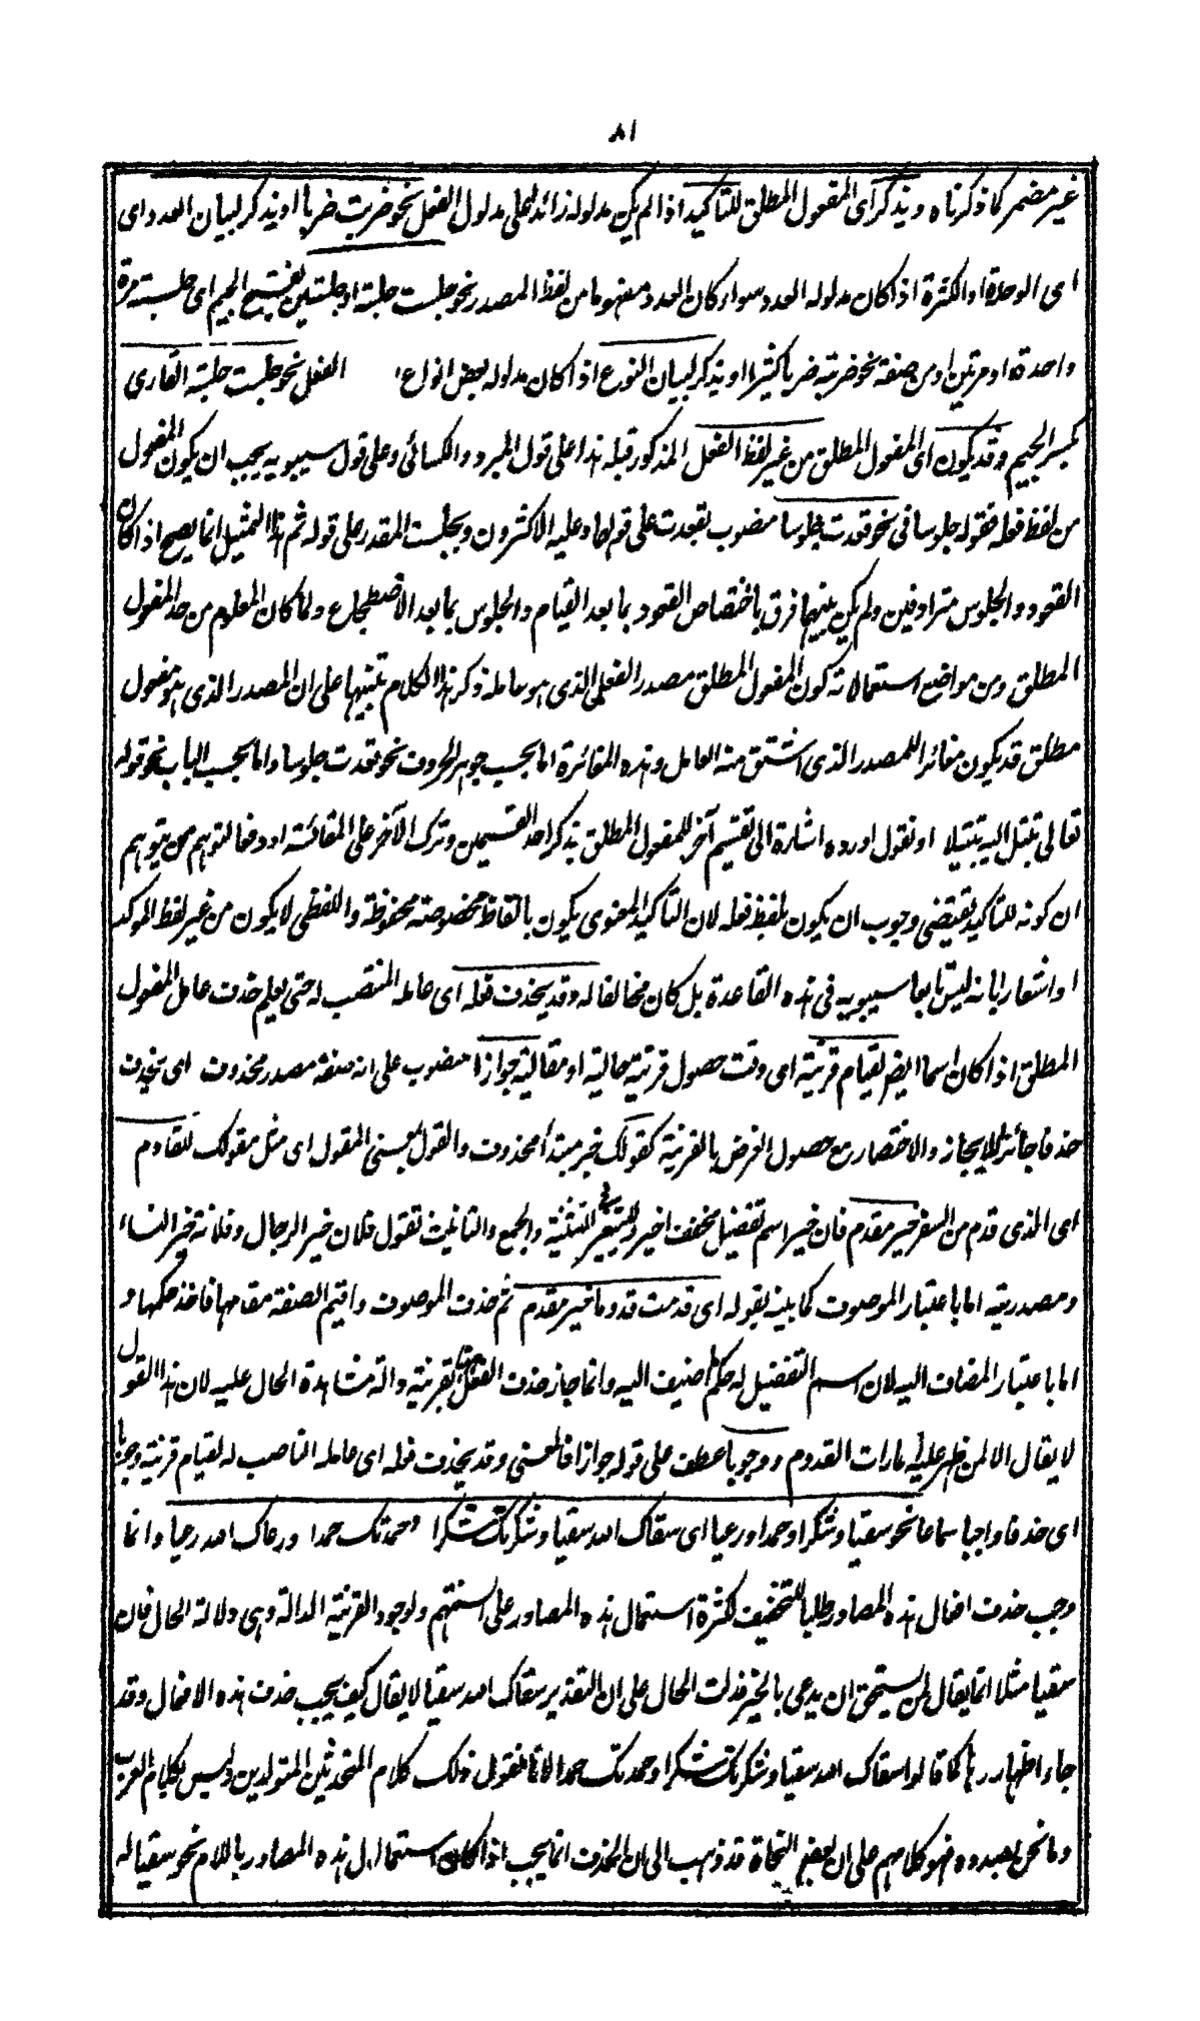 ٨١
غير مضمر كما ذكرناه ويذكر اى المفعول المطلق للتاكيد اذا لم يكن مدلوله زائدا على مدلول الفعل نحو ضربت ضربا او يذكر لبيان العدد اى
اى الوحدة او الكثرة اذا كان مدلوله العدد سواء كان العدد مفهوما من لفظ المصدر نحو جلست جلسة او جلستين بفتح الجيم اى جلسة مرة
واحدة او مرتين او من صفته نحو ضربته ضربا كثيرا او يذكر لبيان النوع اذا كان مدلوله بعض انواع الفعل نحو جلست جلسة القارى
بكسر الجيم وقد يكون اى المفعول المطلق من غير لفظ الفعل المذكور قبله هذا على قول المبرد والكسائى وعلى قول سيبويه يجب ان يكون المفعول
من لفظ فعله فقوله جلوسا فى نحو قعدت جلوسا منصوب بقعدت على قولهما وعليه الاكثرون وبجلست المقدر على قوله ثم هذا التمثيل انما يصح اذا كان
القعود والجلوس مترادفين ولم يكن بينهما فرق باختصاص القعود بما بعد القيام والجلوس بما بعد الاضطجاع ولما كان المعلوم من حد المفعول
المطلق ومن مواضع استعمالاته كون المفعول المطلق مصدر الفعل الذى هو عامله ذكر هذا الكلام تنبيها على ان المصدر الذى هو مفعول
مطلق قد يكون مغائرا للمصدر الذى اشتق منه العامل وهذه المغائرة اما بحسب جوهر الحروف نحو قعدت جلوسا واما بحسب الباب نحو قوله
تعالى تبتل اليه تبتيلا او نقول اورده اشارة الى تقسيم آخر للمفعول المطلق بذكر احد القسمين وترك الآخر على المقائسة او دفعا لتوهم من يتوهم
ان كونه للتاكيد يقتضى وجوب ان يكون بلفظ فعله لان التاكيد المعنوى يكون بالفاظ مخصوصة محفوظة واللفظى لا يكون من غير لفظ الموكد
او اشعارا بانه ليس تابعا سيبويه فى هذه القاعدة بل كان مخالفا له وقد يحذف فعله اى عامله المنتصب له حتى يعلم حذف عامل المفعول
المطلق اذا كان اسما ايضا لقيام قرينة اى وقت حصول قرينة حالية او مقالية جوازا منصوب على انه صفة مصدر محذوف اى يحذف
حذفا جائزا للايجاز والاختصار مع حصول الغرض بالقرينة كقولك خبر مبتدأ محذوف والقول بمعنى المقول اى مثل مقولك للقادم
اى الذى قدم من السفر خير مقدم فان خير اسم تفضيل مخفف اخير ولا يتغير فى التثنية والجمع والتانيث تقول فلان خير الرجال وفلانة خير النساء
ومصدريته اما باعتبار الموصوف كما بينه بقوله اى قدمت قدوما خير مقدم ثم حذف الموصوف واقيم الصفة مقامها فاخذ حكمها و
اما باعتبار المضاف اليه لان اسم التفضيل له حكم ما اضيف اليه وانما جاز حذف الفعل بقرينة دالة مشاهدة الحال عليه لان هذا القول
لا يقال الا لمن ظهر عليه امارات القدوم ووجوبا عطف على قوله جوازا فالمعنى وقد يحذف فعله اى عامله الناصب له لقيام قرينة وجوبا
اى حذفا واجبا سماعا نحو سقيا وشكرا وحمدا ورعيا اى سقاك الله سقيا وشكرتك شكرا وحمدتك حمدا ورعاك الله رعيا وانما
وجب حذف افعال هذه المصادر طلبا للتخفيف لكثرة استعمال هذه المصادر على السنتهم ولوجود القرينة الدالة وهى دلالة الحال فان
سقيا مثلا انما يقال لمن يستحق ان يدعى بالخير فدلت الحال على ان التقدير سقاك الله سقيا لا يقال كيف يجب حذف هذه الافعال وقد
جاء اظهارها كما قالوا سقاك الله سقيا وشكرتك شكرا وحمدتك حمدا لانا نقول ذلك كلام المتحدثين المتولدين وليس بكلام العرب
وما نحن بصدده فهو كلامهم على ان بعض النحاة قد ذهب الى ان الحذف انما يجب اذا كان استعمال هذه المصادر باللام نحو سقيا له